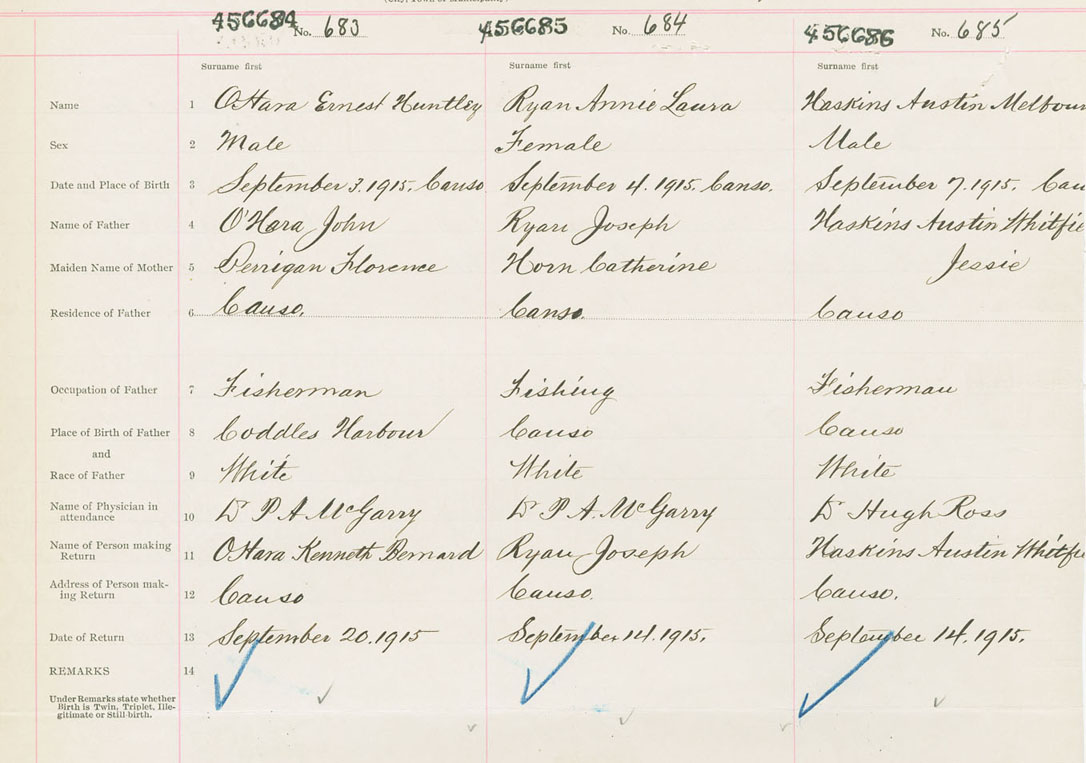 (City, Town or Municipality)
456684 No. 683 456685 No. 684 456686 No. 685
Surname first Surname first Surname first
Name 1 OHara Ernest Huntley Ryan Annie Laura Haskins Austin Melbour
Sex 2 Male Female Male
Date and Place of Birth 3 September 3. 1915. Canso September 4. 1915. Canso. September 7. 1915. Can
Name of Father 4 O'Hara John Ryan Joseph Haskins Austin Whitfie
Maiden Name of Mother 5 Derrigan Florence Horn Catherine Jessie
Residence of Father 6 Canso. Canso. Canso
Occupation of Father 7 Fisherman Fishing Fisherman
Place of Birth of Father 8 Coddles Harbour Canso Canso
and
Race of Father 9 White White White
Name of Physician in
attendance 10 Dr P A McGarry Dr P A. McGarry Dr Hugh Ross
Name of Person making
Return 11 OHara Kenneth Bernard Ryan Joseph Haskins Austin Whitfie
Address of Person mak-
ing Return 12 Canso Canso. Canso.
Date of Return 13 September 20. 1915 September 14. 1915. September 14. 1915.
REMARKS 14
Under Remarks state whether
Birth is Twin, Triplet, Ille-
gitimate or Still-birth.